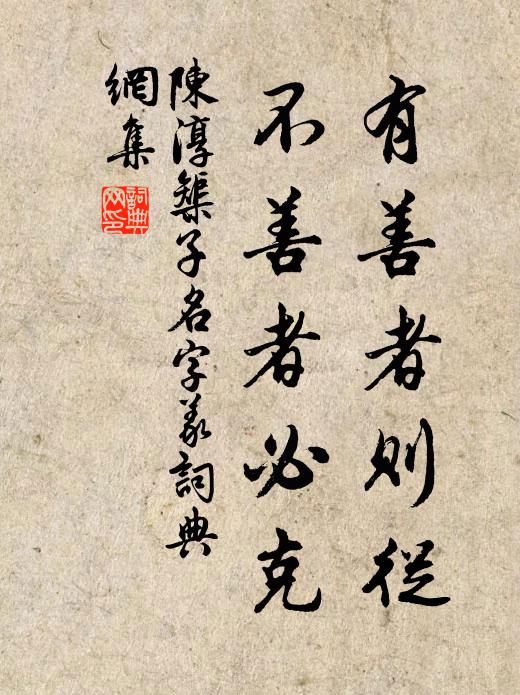 有善者則從
不善者必克
陳淳榘子名字義詞典
網集
詞典網印